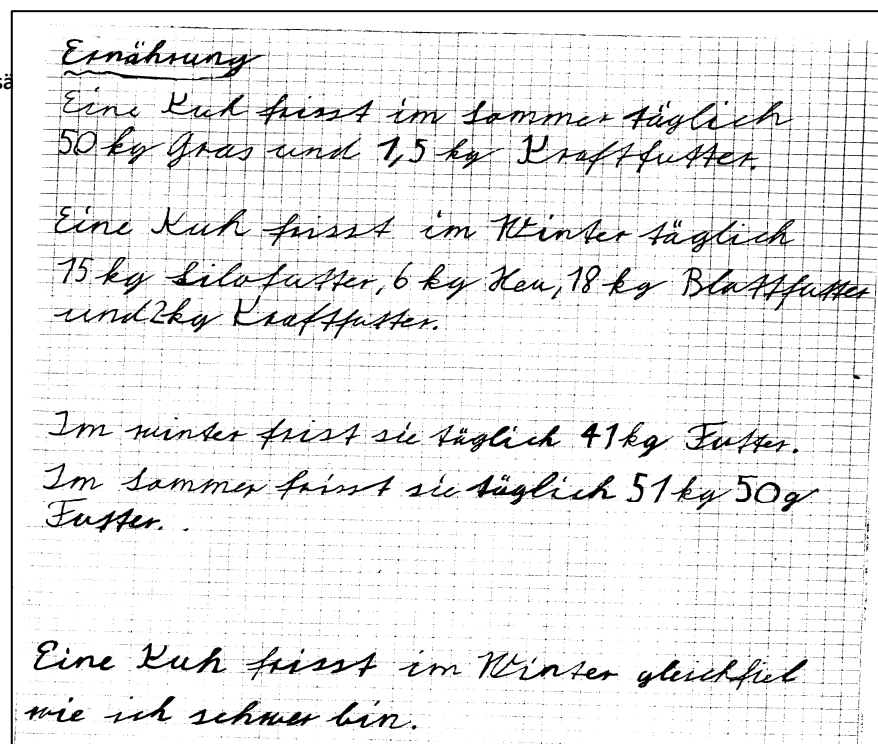 Ernährung
sä
Eine Kuh frisst im Sommer täglich
50 kg Gras und 1,5 kg Kraftfutter.
Eine Kuh frisst im Winter täglich
15 kg Silofutter, 6 kg Heu, 18 kg Blattfutter
und 2kg Kraftfutter.
Im winter frist sie täglich 41 kg Futter.
Im Sommer frisst sie täglich 51 kg 50g
Futter..
Eine Kuh frisst im Winter gleichfiel
wie ich schwer bin.